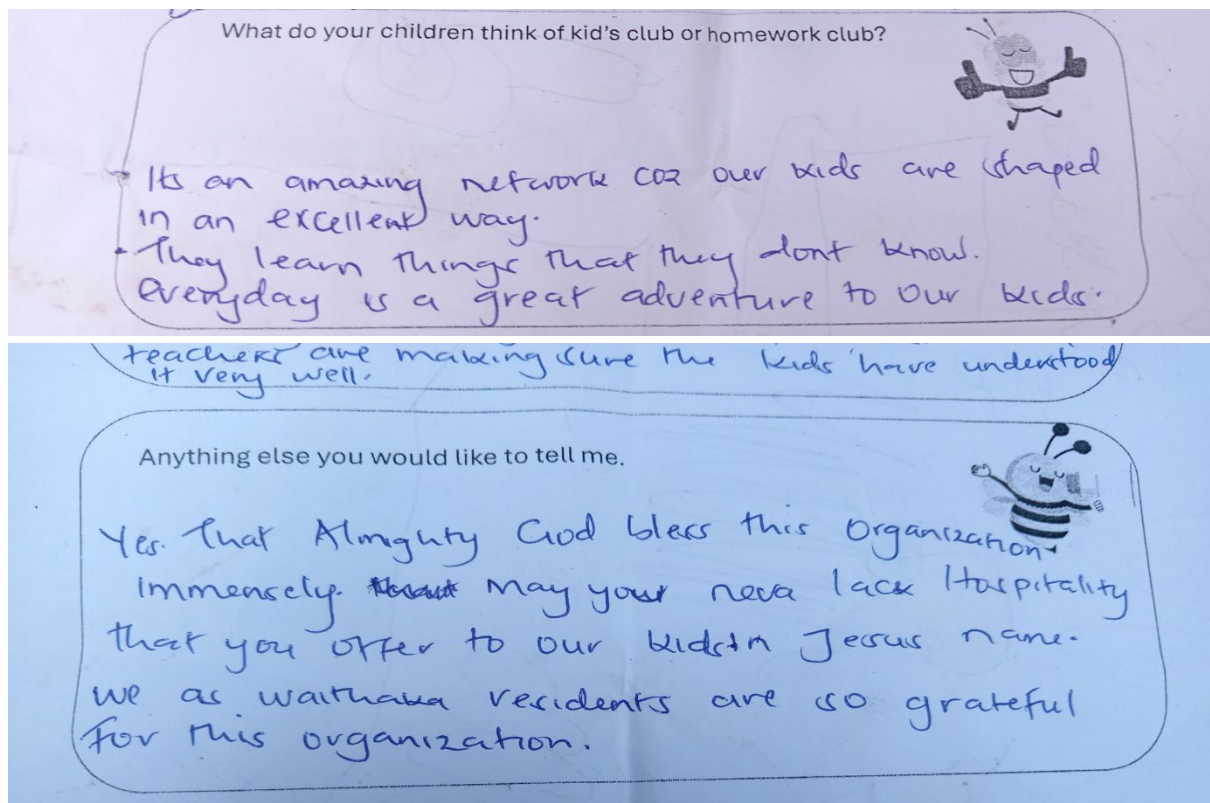 What do your children think of kid's club or homework club?
Its an amazing network coz our kids are shaped
in an excellent way.
• They learn things that they dont know.
everyday is a great adventure to our kids.
teachers are making sure the kids have understood
it very well.
Anything else you would like to tell me.
Yes. That Almighty God bless this Organization
immensely. May your neva lack Hospitality
that you offer to our kids in Jesus name.
we as waithaka residents are so grateful
for this organization.